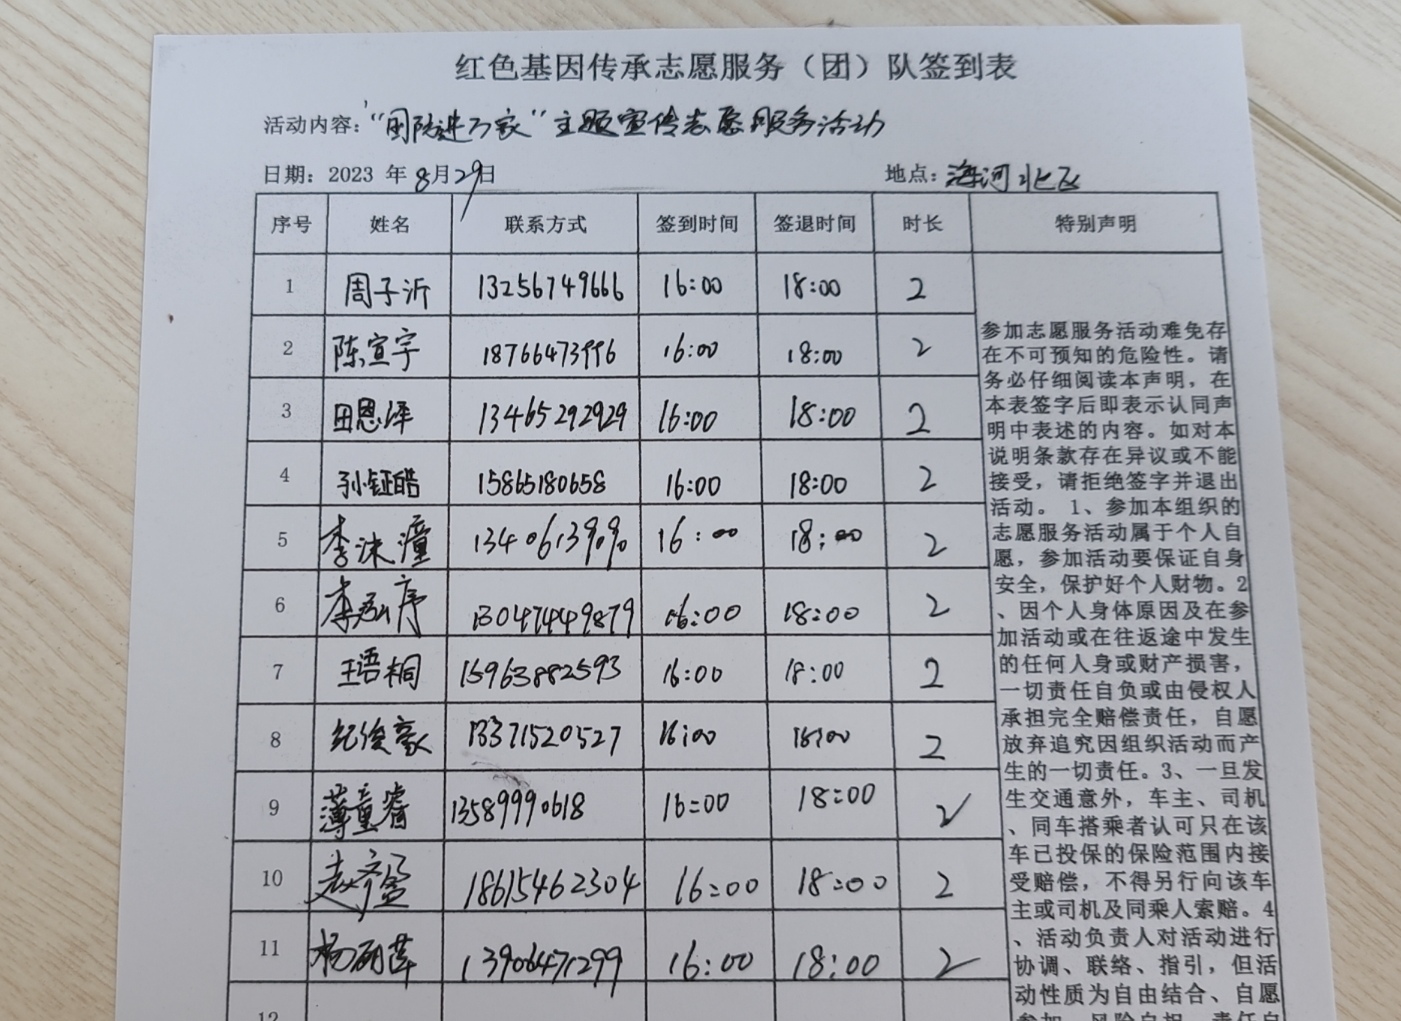 红色基因传承志愿服务（团）队签到表
活动内容：“国防进万家”主题宣传志愿服务活动
日期：2023 年 8月29日 地点：海河北飞
序号 姓名 联系方式 签到时间 签退时间 时长 特别声明
1 周子沂 13256749666 16:00 18:00 2
2 陈宣宇 16:00 18:00 2
3 田恩泽 13465292929 16:00 18:00 2
4 孙钲皓 15865180658 16:00 18:00 2
5 李沫潼 16:00 18:00 2
6 李弘序 16:00 18:00 2
7 王语桐 15963882593 16:00 18:00 2
8 纪俊豪 13371520527 16:00 18:00 2
9 薄童睿 13589990618 16:00 18:00 2
10 18615462304 16:00 18:00 2
11 13906471299 16:00 18:00 2
12
参加志愿服务活动难免存
在不可预知的危险性。请
务必仔细阅读本声明，在
本表签字后即表示认同声
明中表述的内容。如对本
说明条款存在异议或不能
接受，请拒绝签字并退出
活动。 1、参加本组织的
志愿服务活动属于个人自
愿，参加活动要保证自身
安全，保护好个人财物。2
、因个人身体原因及在参
加活动或在往返途中发生
的任何人身或财产损害，
一切责任自负或由侵权人
承担完全赔偿责任，自愿
放弃追究因组织活动而产
生的一切责任。3、一旦发
生交通意外，车主、司机
、同车搭乘者认可只在该
车已投保的保险范围内接
受赔偿，不得另行向该车
主或司机及同乘人索赔。4
、活动负责人对活动进行
协调、联络、指引，但活
动性质为自由结合、自愿
参加、风险自担、责任自